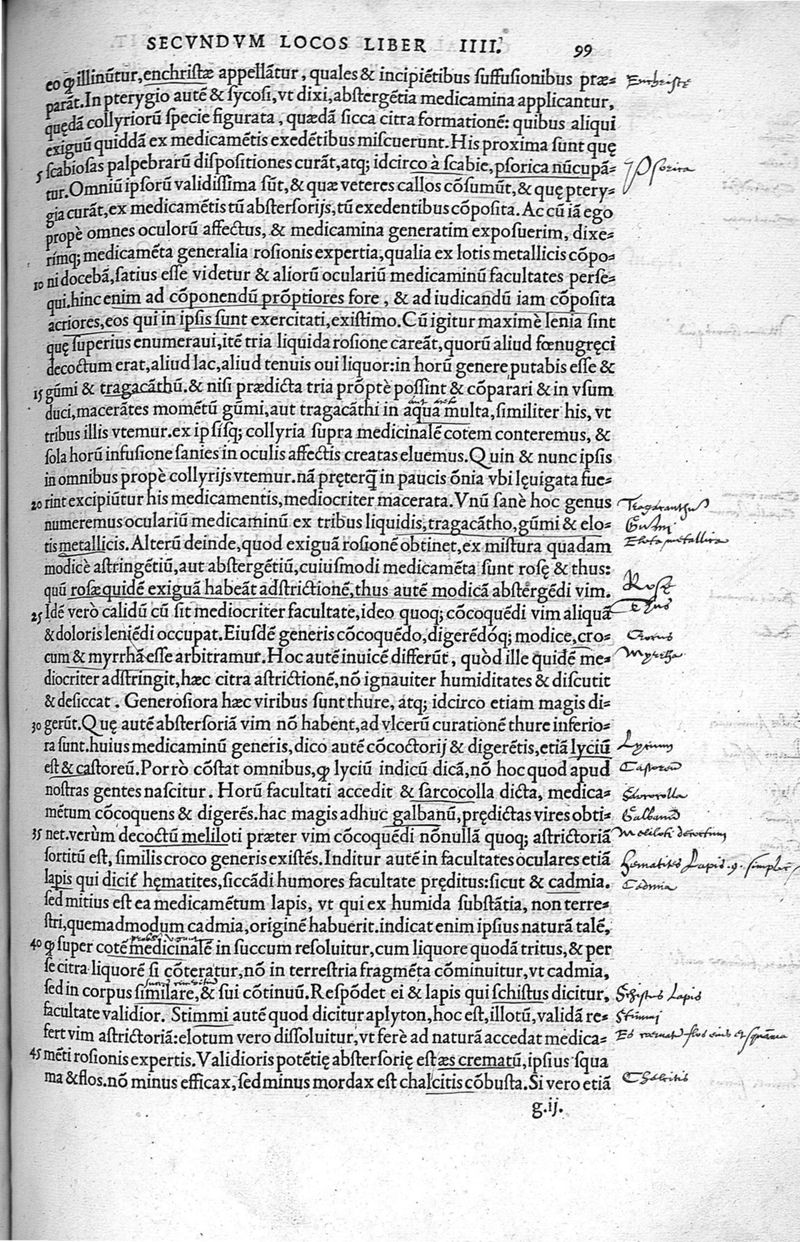 SECVNDVM LOCOS LIBER IIII. 99
eo ꝙ illinūtur, enchristæ appellātur, quales & incipiētibus suffusionibus præ-
parāt. In pterygio autē & sycosi, vt dixi, abstergētia medicamina applicantur,
quędā collyriorū specie figurata, quædā sicca citra formationē: quibus aliqui
exiguū quiddā ex medicamētis exedētibus miscuerunt. His proxima sunt quę
5 scabiosas palpebrarū dispositiones curāt, atq; idcirco à scabie, psorica nūcupā-
tur. Omniū ipsorū validissima sūt, & quæ veteres callos cōsumūt, & quę ptery-
gia curāt, ex medicamētis tū abstersorijs, tū exedentibus cōposita. Ac cū iā ego
propè omnes oculorū affectus, & medicamina generatim exposuerim, dixe-
rimq; medicamēta generalia rosionis expertia, qualia ex lotis metallicis cōpo-
10 ni docebā, satius esse videtur & aliorū oculariū medicaminū facultates perse-
qui. hinc enim ad cōponendū prōptiores fore, & ad iudicandū iam cōposita
acriores, eos qui in ipsis sunt exercitati, existimo. Cū igitur maximè lenia sint
quę superius enumeraui, itē tria liquida rosione careāt, quorū aliud fœnugręci
decoctum erat, aliud lac, aliud tenuis oui liquor: in horū genere putabis esse &
15 gūmi & tragacāthū. & nisi prædicta tria prōptè possint & cōparari & in vsum
duci, macerātes momētū gūmi, aut tragacāthi in aqua multa, similiter his, vt
tribus illis vtemur. ex ipsisq; collyria supra medicinalē cotem conteremus, &
sola horū infusione sanies in oculis affectis creatas eluemus. Quin & nunc ipsis
in omnibus propè collyrijs vtemur. nā pręterq̄ in paucis ōnia vbi lęuigata fue-
20 rint excipiūtur his medicamentis, mediocriter macerata. Vnū sanè hoc genus
numeremus oculariū medicaminū ex tribus liquidis, tragacātho, gūmi & elo-
tis metallicis. Alterū deinde, quod exiguā rosionē obtinet, ex mistura quadam
modicè astringētiū, aut abstergētiū, cuiusmodi medicamēta sunt rosę & thus:
quū rosæ quidē exiguā habeāt adstrictionē, thus autē modicā abstergēdi vim.
25 Idē verò calidū cū sit mediocriter facultate, ideo quoq; cōcoquēdi vim aliquā
& doloris leniēdi occupat. Eiusdē generis cōcoquēdo, digerēdoq; modice, cro-
cum & myrrhā esse arbitramur. Hoc autē inuicē differūt, quòd ille quidē me-
diocriter adstringit, hæc citra astrictionē, nō ignauiter humiditates & discutit
& desiccat. Generosiora hæc viribus sunt thure, atq; idcirco etiam magis di-
30 gerūt. Quę autē abstersoriā vim nō habent, ad vlcerū curationē thure inferio-
ra sunt. huius medicaminū generis, dico autē cōcoctorij & digerētis, etiā lyciū
est & castoreū. Porrò cōstat omnibus, ꝙ lyciū indicū dicā, nō hoc quod apud
nostras gentes nascitur. Horū facultati accedit & sarcocolla dicta, medica-
mētum cōcoquens & digerēs. hac magis adhuc galbanū, prędictas vires obti-
35 net. verùm decoctū meliloti præter vim cōcoquēdi nōnullā quoq; astrictoriā
sortitū est, similis croco generis existēs. Inditur autē in facultates oculares etiā
lapis qui dicit̄ hęmatites, siccādi humores facultate prędītus: sicut & cadmia.
sed mitius est ea medicamētum lapis, vt qui ex humida substātia, non terre-
stri, quemadmodum cadmia, originē habuerit. indicat enim ipsius naturā talē,
40 ꝙ super cotē medicinalē in succum resoluitur, cum liquore quodā tritus, & per
se citra liquorē si cōteratur, nō in terrestria fragmēta cōminuitur, vt cadmia,
sed in corpus similare, & sui cōtinuū. Respōdet ei & lapis qui schistus dicitur,
facultate validior. Stimmi autē quod dicitur aplyton, hoc est, illotū, validā re-
fert vim astrictoriā: elotum vero dissoluitur, vt ferè ad naturā accedat medica-
45 mēti rosionis expertis. Validioris potētię abstersorię est æs crematū, ipsius squa
ma & flos. nō minus efficax, sed minus mordax est chalcitis cōbusta. Si vero etiā
g.ij.
Enchristę
Psorica
Tragacanthū
Gūmi
Elota metallica
Rosę
Thus
Crocus
Myrrha
Lycium
Castoreū
Sarcocolla
Galbanū
Meliloti decoctum
Hematites Lapis
Cadmia
Schistus Lapis
Stimmi
Es crematū flos eius et squama
Chalcitis